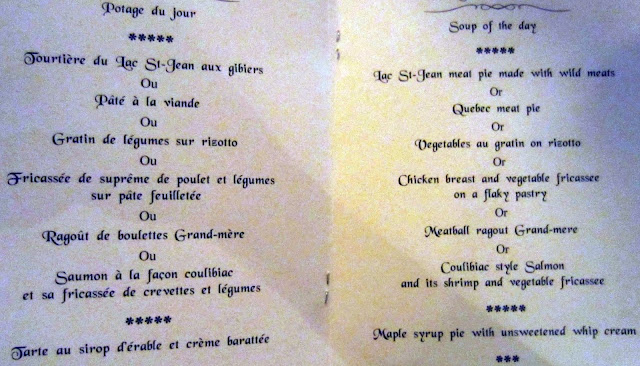 Potage du jour
*****
Tourtière du Lac St-Jean aux gibiers
Ou
Pâté à la viande
Ou
Gratin de légumes sur rizotto
Ou
Fricassée de suprême de poulet et légumes
sur pâte feuilletée
Ou
Ragoût de boulettes Grand-mère
Ou
Saumon à la façon coulibiac
et sa fricassée de crevettes et légumes
*****
Tarte au sirop d'érable et crème barattée
Soup of the day
*****
Lac St-Jean meat pie made with wild meats
Or
Quebec meat pie
Or
Vegetables au gratin on rizotto
Or
Chicken breast and vegetable fricassee
on a flaky pastry
Or
Meatball ragout Grand-mere
Or
Coulibiac style Salmon
and its shrimp and vegetable fricassee
*****
Maple syrup pie with unsweetened whip cream
***